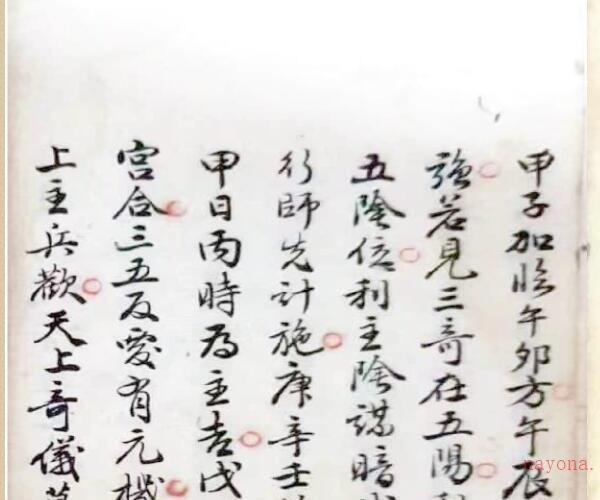 甲子加臨午卯方午辰
強若見三奇在五陽
五陰位利主陰謀暗
行師先計施庚辛壬
甲日丙時為主客戊
宮合三五反變有元機
上主兵歡天上奇儀
nayona.